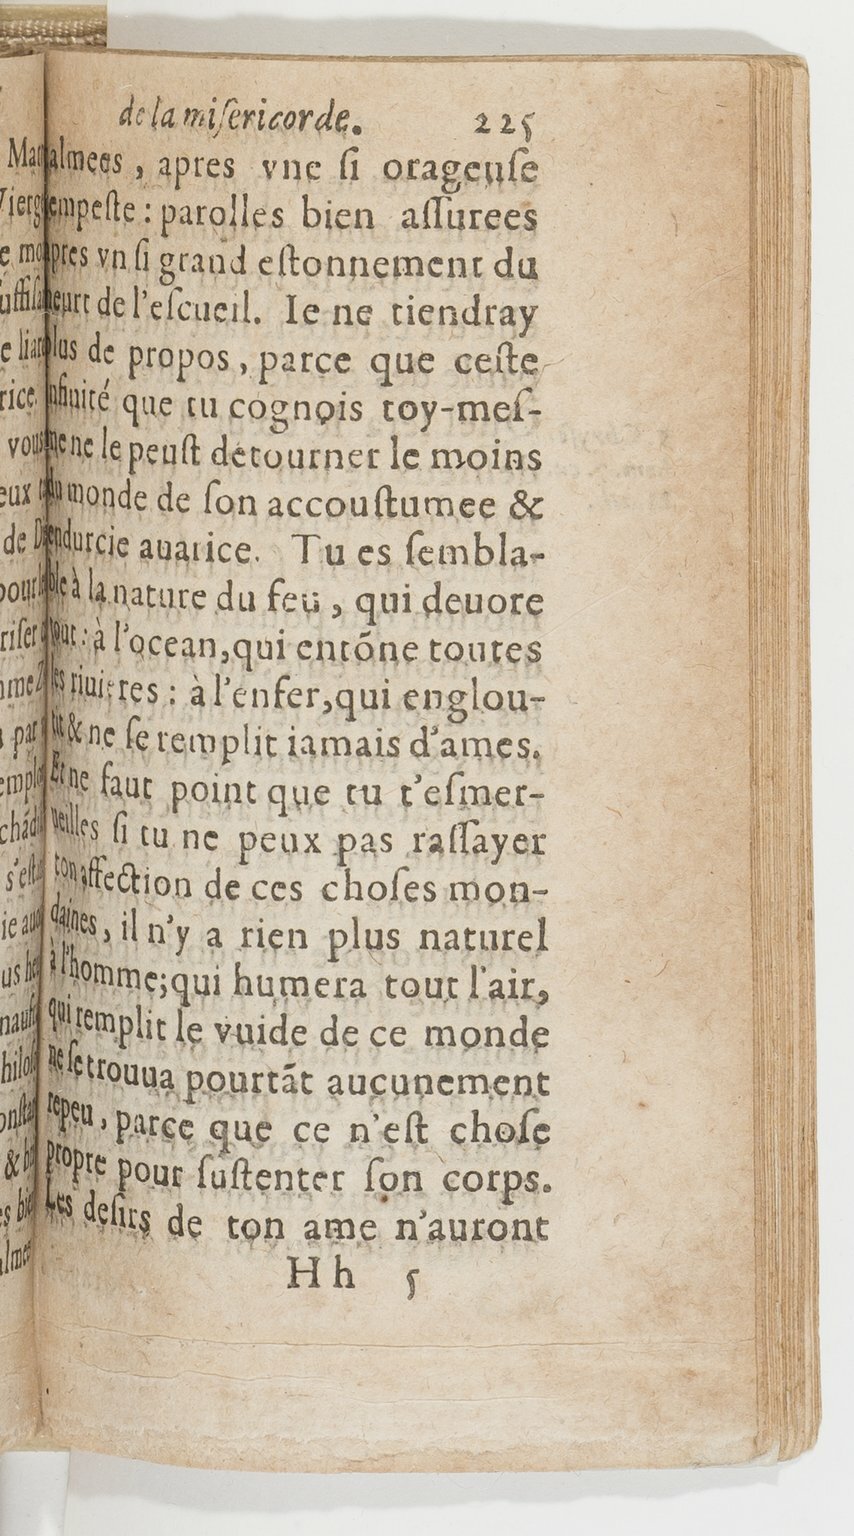 de la miſericorde. 225
almees, apres vne ſi orageuſe
empeſte : parolles bien aſſurees
pres vn ſi grand eſtonnement du
eurt de l'eſcueil. Ie ne tiendray
lus de propos, parce que ceſte
nfinité que tu cognois toy-meſ-
me ne le peuſt détourner le moins
du monde de ſon accouſtumee &
endurcie auarice. Tu es ſembla-
ble à la nature du feu, qui deuore
tout : à l'ocean, qui entõne toutes
les riuieres : à l'enfer, qui englou-
tit & ne ſe remplit iamais d'ames.
Et ne faut point que tu t'eſmer-
ueilles ſi tu ne peux pas raſſayer
ton affection de ces choſes mon-
daines, il n'y a rien plus naturel
à l'homme; qui humera tout l'air,
qui remplit le vuide de ce monde
ne ſe trouua pourtãt aucunement
repeu, parce que ce n'eſt choſe
propre pour ſuſtenter ſon corps.
Les deſirs de ton ame n'auront
Hh 5